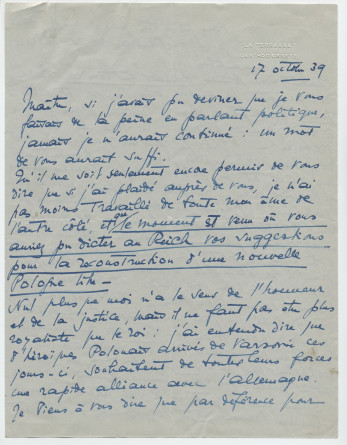 LA TERRASSE
17 octobre 39
Maître, si j'avais pu deviner que je vous
faisais de la peine en parlant politique,
jamais je n'aurais continué : un mot
de vous aurait suffi.
Qu'il me soit seulement encore permis de vous
dire que si j'ai plaidé auprès de vous, je n'ai
pas moins travaillé de toute mon âme de
l'autre côté, et que le moment est venu où vous
auriez pu dicter au Reich vos suggestions
pour la reconstruction d'une nouvelle
Pologne libre –
Nul plus que moi n'a le sens de l'honneur
et de la justice, mais il ne faut pas être plus
royaliste que le roi : j'ai entendu dire que
d'héroïques Polonais arrivés de Varsovie ces
jours-ci, souhaitent de toutes leurs forces
une rapide alliance avec l'Allemagne.
Je viens à vous dire que par déférence pour